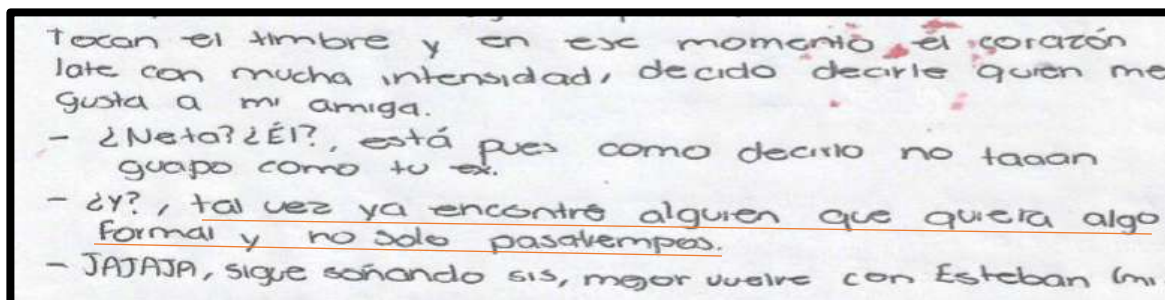 Tocan el timbre y en ese momento el corazón
late con mucha intensidad, decido decirle quien me
gusta a mi amiga.
- ¿Neta? ¿Él?, está pues como decirlo no taaan
guapo como tu ex.
- ¿Y?, tal vez ya encontré alguien que quiera algo
formal y no solo pasatiempos.
- JAJAJA, sigue soñando sis, mejor vuelve con Esteban (mi